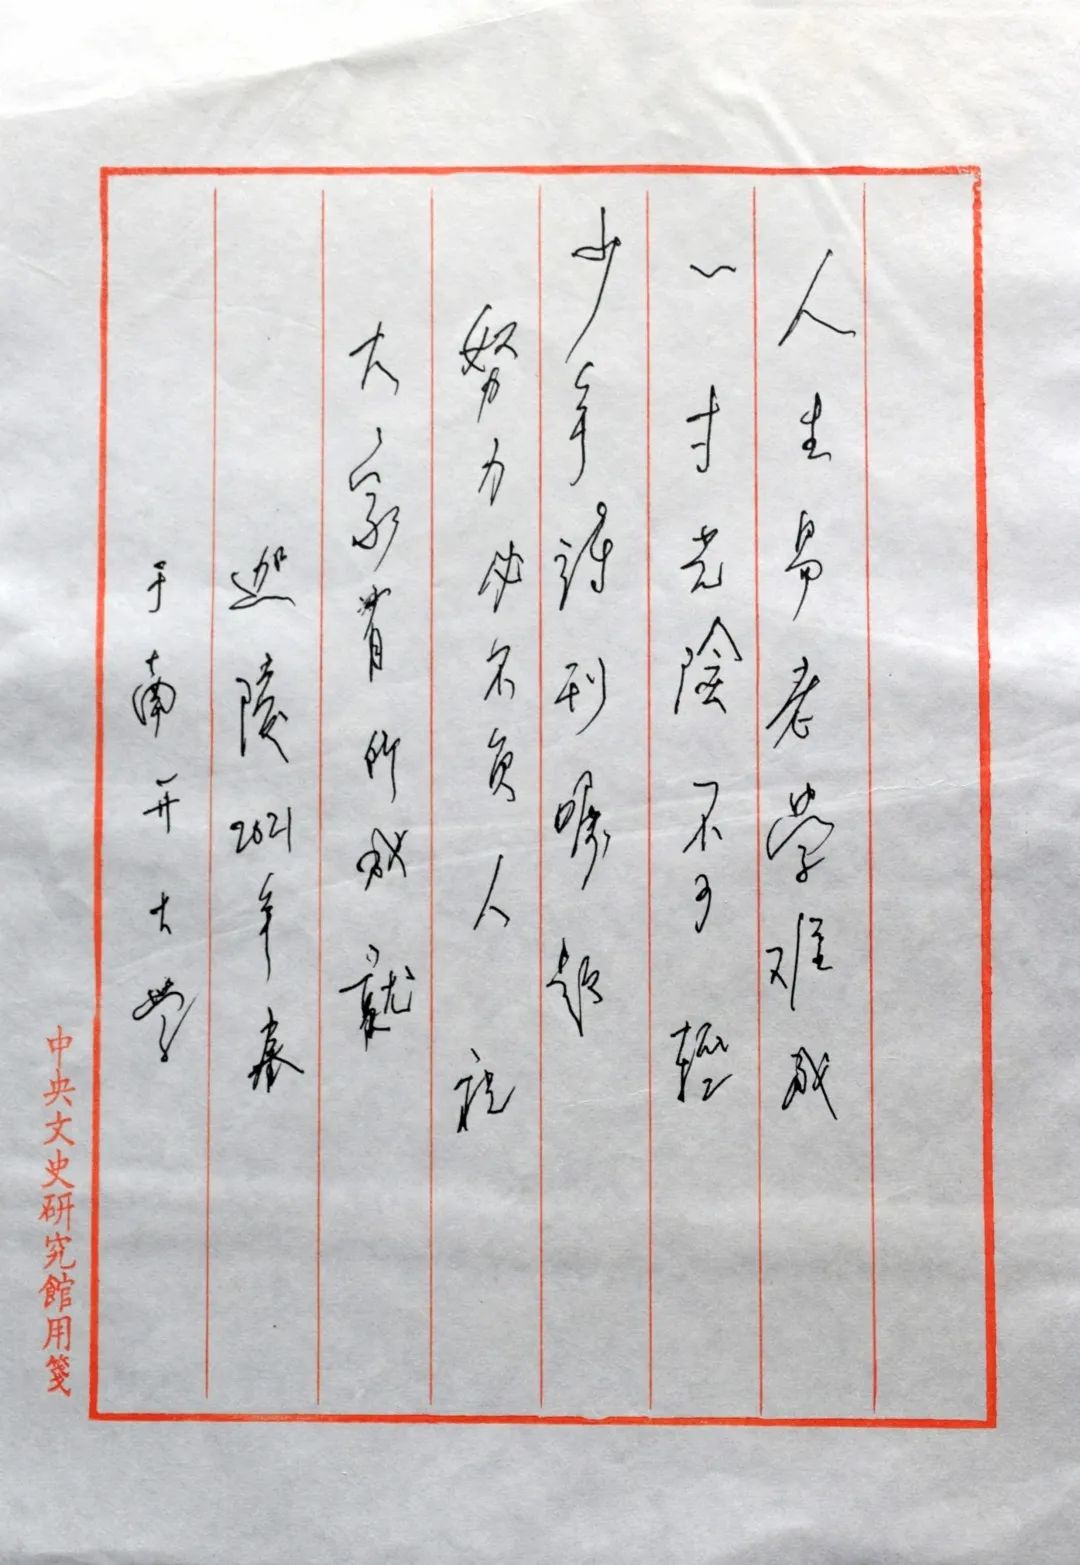 人生易老学难成
一寸光陰不可輕
少年诗刊嘱
努力必不負人 祝
大家有所成就
迦陵 2021年春
于南开大学
中央文史研究館用箋